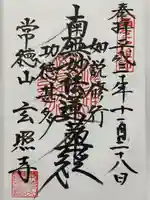 奉拝 三十年十一月二十八日
如説修行
南無妙法蓮華経
功徳甚多
常徳山 玄照寺